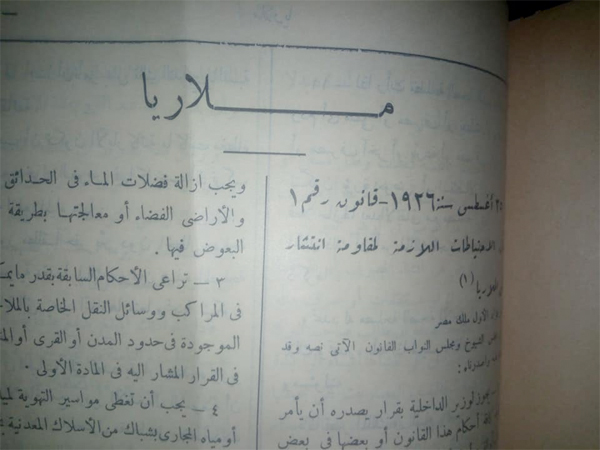 ملاريا
٢٥ أغسطس سنة ١٩٢٦ - قانون رقم ١
الاحتياطات اللازمة لمقاومة انتشار
الملاريا (١)
الأول ملك مصر
الشيوخ ومجلس النواب القانون الآتى نصه وقد
وأصدرناه :
يجوز لوزير الداخلية بقرار يصدره أن يأمر
أحكام هذا القانون أو بعضها فى بعض
ويجب ازالة فضلات المـاء فى الحدائق
والأراضى الفضاء أو معالجتها بطريقة
البعوض فيها .
٣ — تراعى الأحكام السابقة بقدر ما يمك
فى المراكب ووسائل النقل الخاصة بالملا
الموجودة فى حدود المدن أو القرى أو المنا
فى القرار المشار اليه فى المادة الأولى .
٤ — يجب أن تغطى مواسير التهوية لميا
أو مياه المجارى بشباك من الأسلاك المعدنية